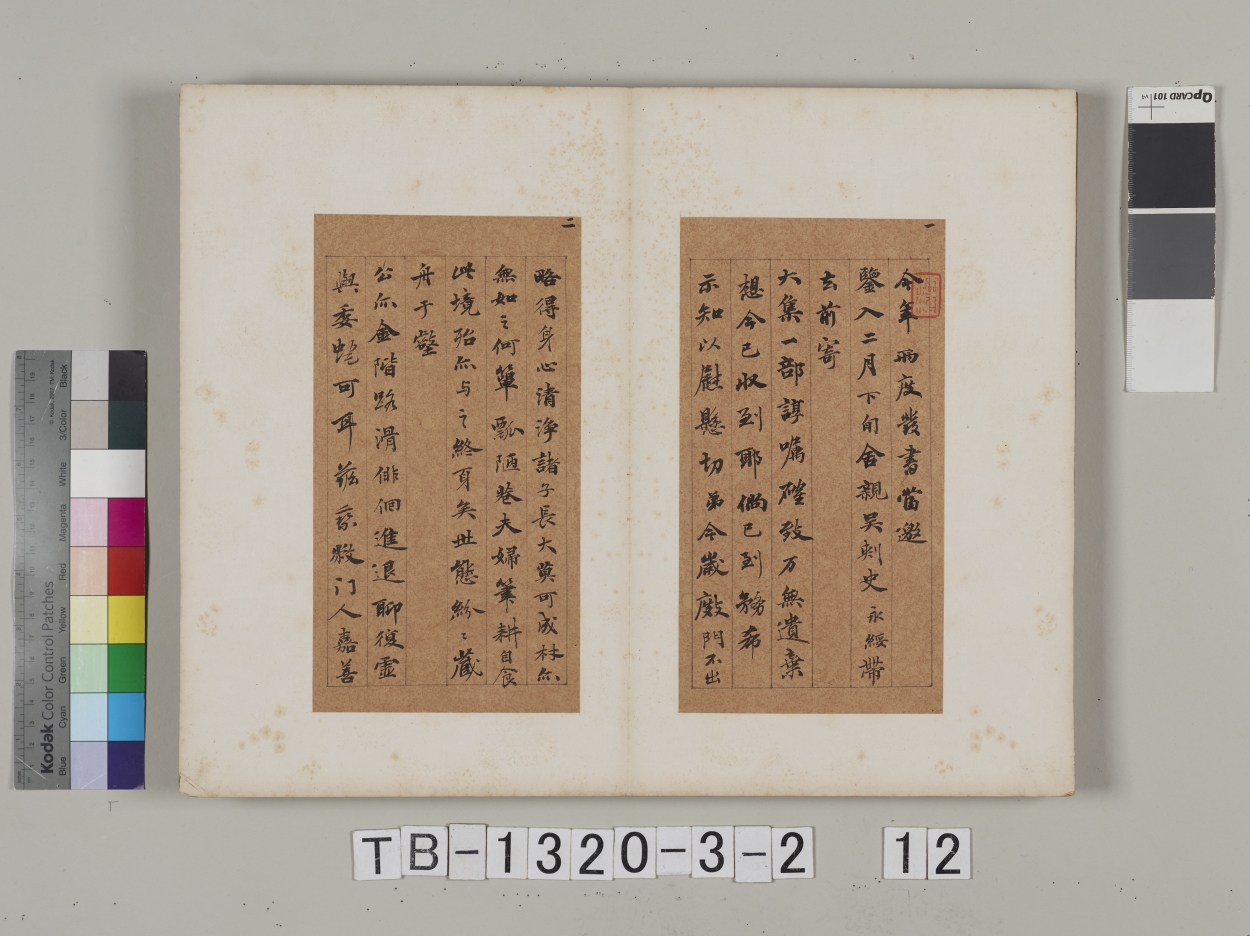 一
今年兩度發書當邀
鑒入二月下旬舍親吳刺史永綏帶
去前寄
大集一部諄囑確致万無遺棄
想今已收到耶倘已到務希
示知以慰懸切弟今歲廠門不出
二
略得身心清淨諸子長大莫可成材尒
無如之何簞瓢陋巷夫婦筆耕自食
此境殆亦与之終身矣世態紛〻藏
舟于壑
公尒金階路滑俳徊進退聊復虛
與委蛇可耳茲乘敝门人嘉善
QpCARD 101
v4
Kodak Color Control Patches
© Kodak, 2007, TM: Kodak
Blue
Cyan
Green
Yellow
Red
Magenta
White
3/Color
Black
TB-1320-3-2 12